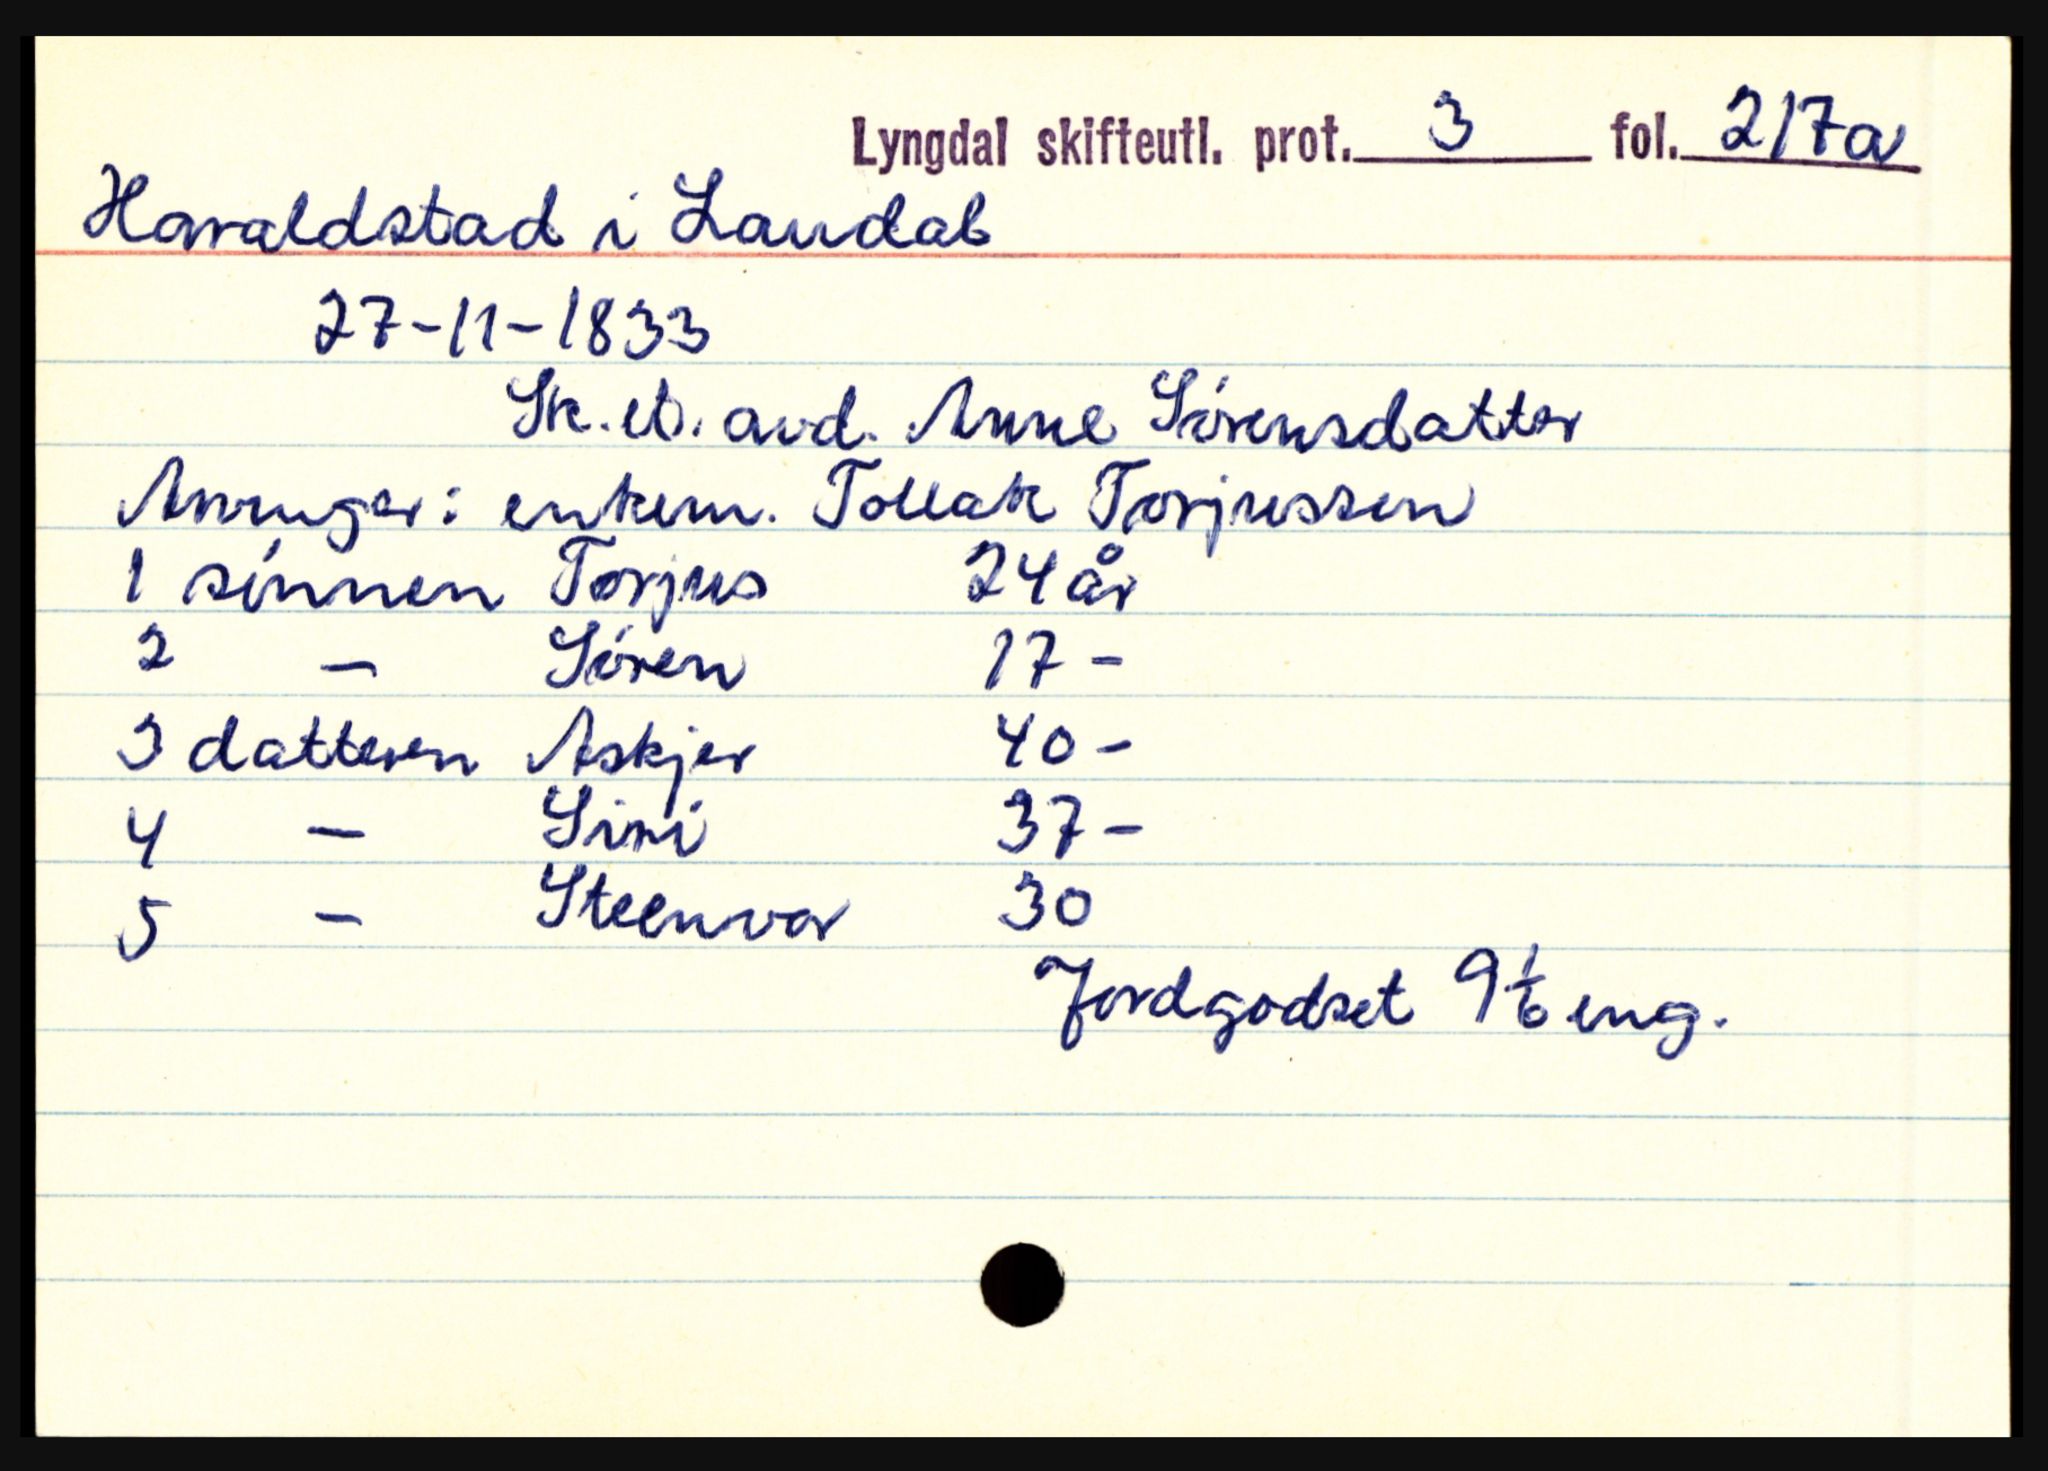 Lyngdal skifteutl. prot. 3 fol. 217a
Haraldstad i Laudal
27-11-1833
Sk. et. avd. Anne Sørensdatter
Arvinger: enkem. Tollak Torjussen
1 sønnen Torjus 24 år
2 – Søren 17 –
3 datteren Askjer 40 –
4 – Siri 37 –
5 – Steenvor 30
Jordgodset 9 1/6 eng.